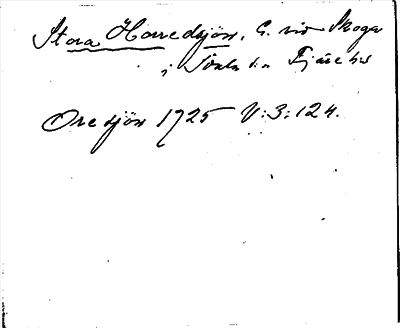 Stora Horredsjön, G. vid Skoga
i Tölö sn Fjäre hd
Oredsjön 1725 V:3:124.